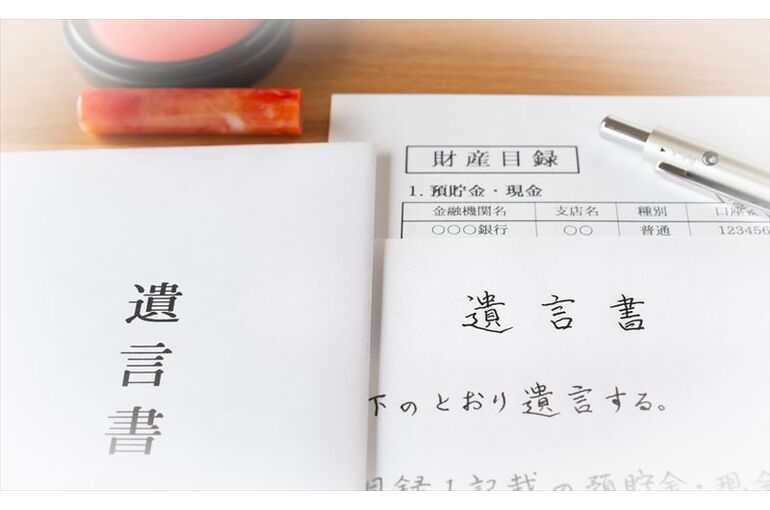 財産目録
1. 預貯金・現金
金融機関名 支店名 種別
〇〇〇銀行 〇〇 普通 123456
遺言書
遺言書
下のとおり遺言する。
目録1記載の預貯金・現金